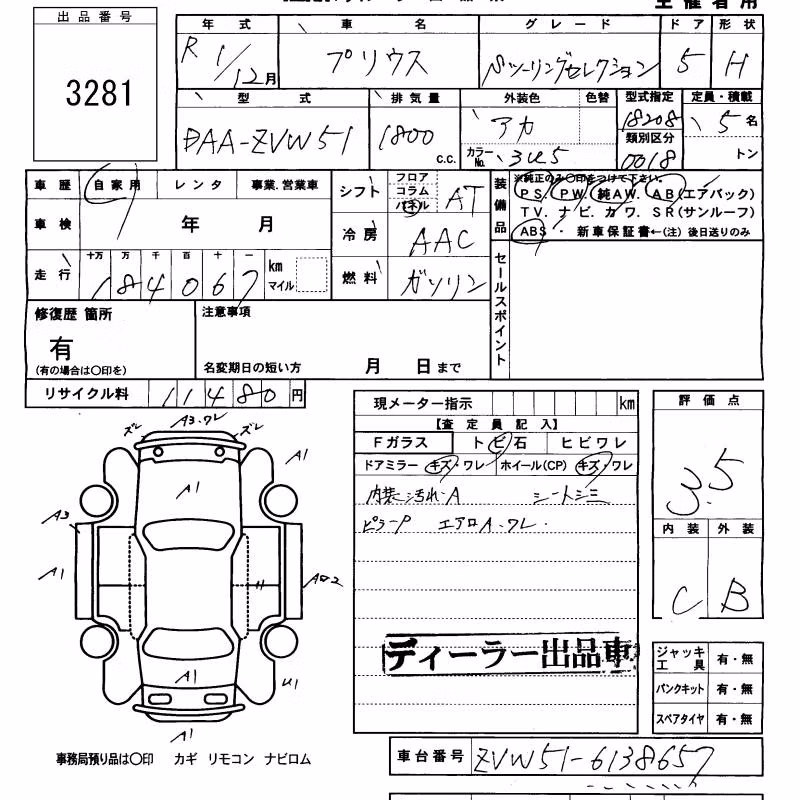 出品番号
3281
年式 車名 グレード ドア 形状
R 1/12月 プリウス Sツーリングセレクション 5 H
型式 排気量 外装色 色替 型式指定 定員・積載
DAA-ZVW51 1800 c.c. アカ 18208 5名
類別区分
カラーNo. 3U5 0018 トン
車歴 自家用 レンタ 事業.営業車
シフト フロア コラム パネル AT
車検 年 月
冷房 AAC
走行 十万 万 千 百 十 一
184067 km マイル
燃料 ガソリン
装備品
※純正のみ〇印をつけて下さい。
PS. PW. 純AW. AB(エアバック)
TV. ナビ. カワ. SR(サンルーフ)
ABS ・ 新車保証書←(注) 後日送りのみ
セールスポイント
修復歴 箇所
有
(有の場合は〇印を)
注意事項
名変期日の短い方 月 日まで
リサイクル料 11480円
現メーター指示 km
【査定員記入】
Fガラス トビ石 ヒビワレ
ドアミラー キズ・ワレ ホイール(CP) キズ・ワレ
内装汚れ・A シートシミ
ピラーP エアロA・ワレ・
ディーラー出品車
評価点
3.5
内装 外装
C B
ジャッキ工具 有・無
パンクキット 有・無
スペアタイヤ 有・無
ズレ A3.ワレ ズレ
A1
A1
A3
A1
A1
U1
A1
事務局預り品は〇印 カギ リモコン ナビロム
車台番号 ZVW51-6138657